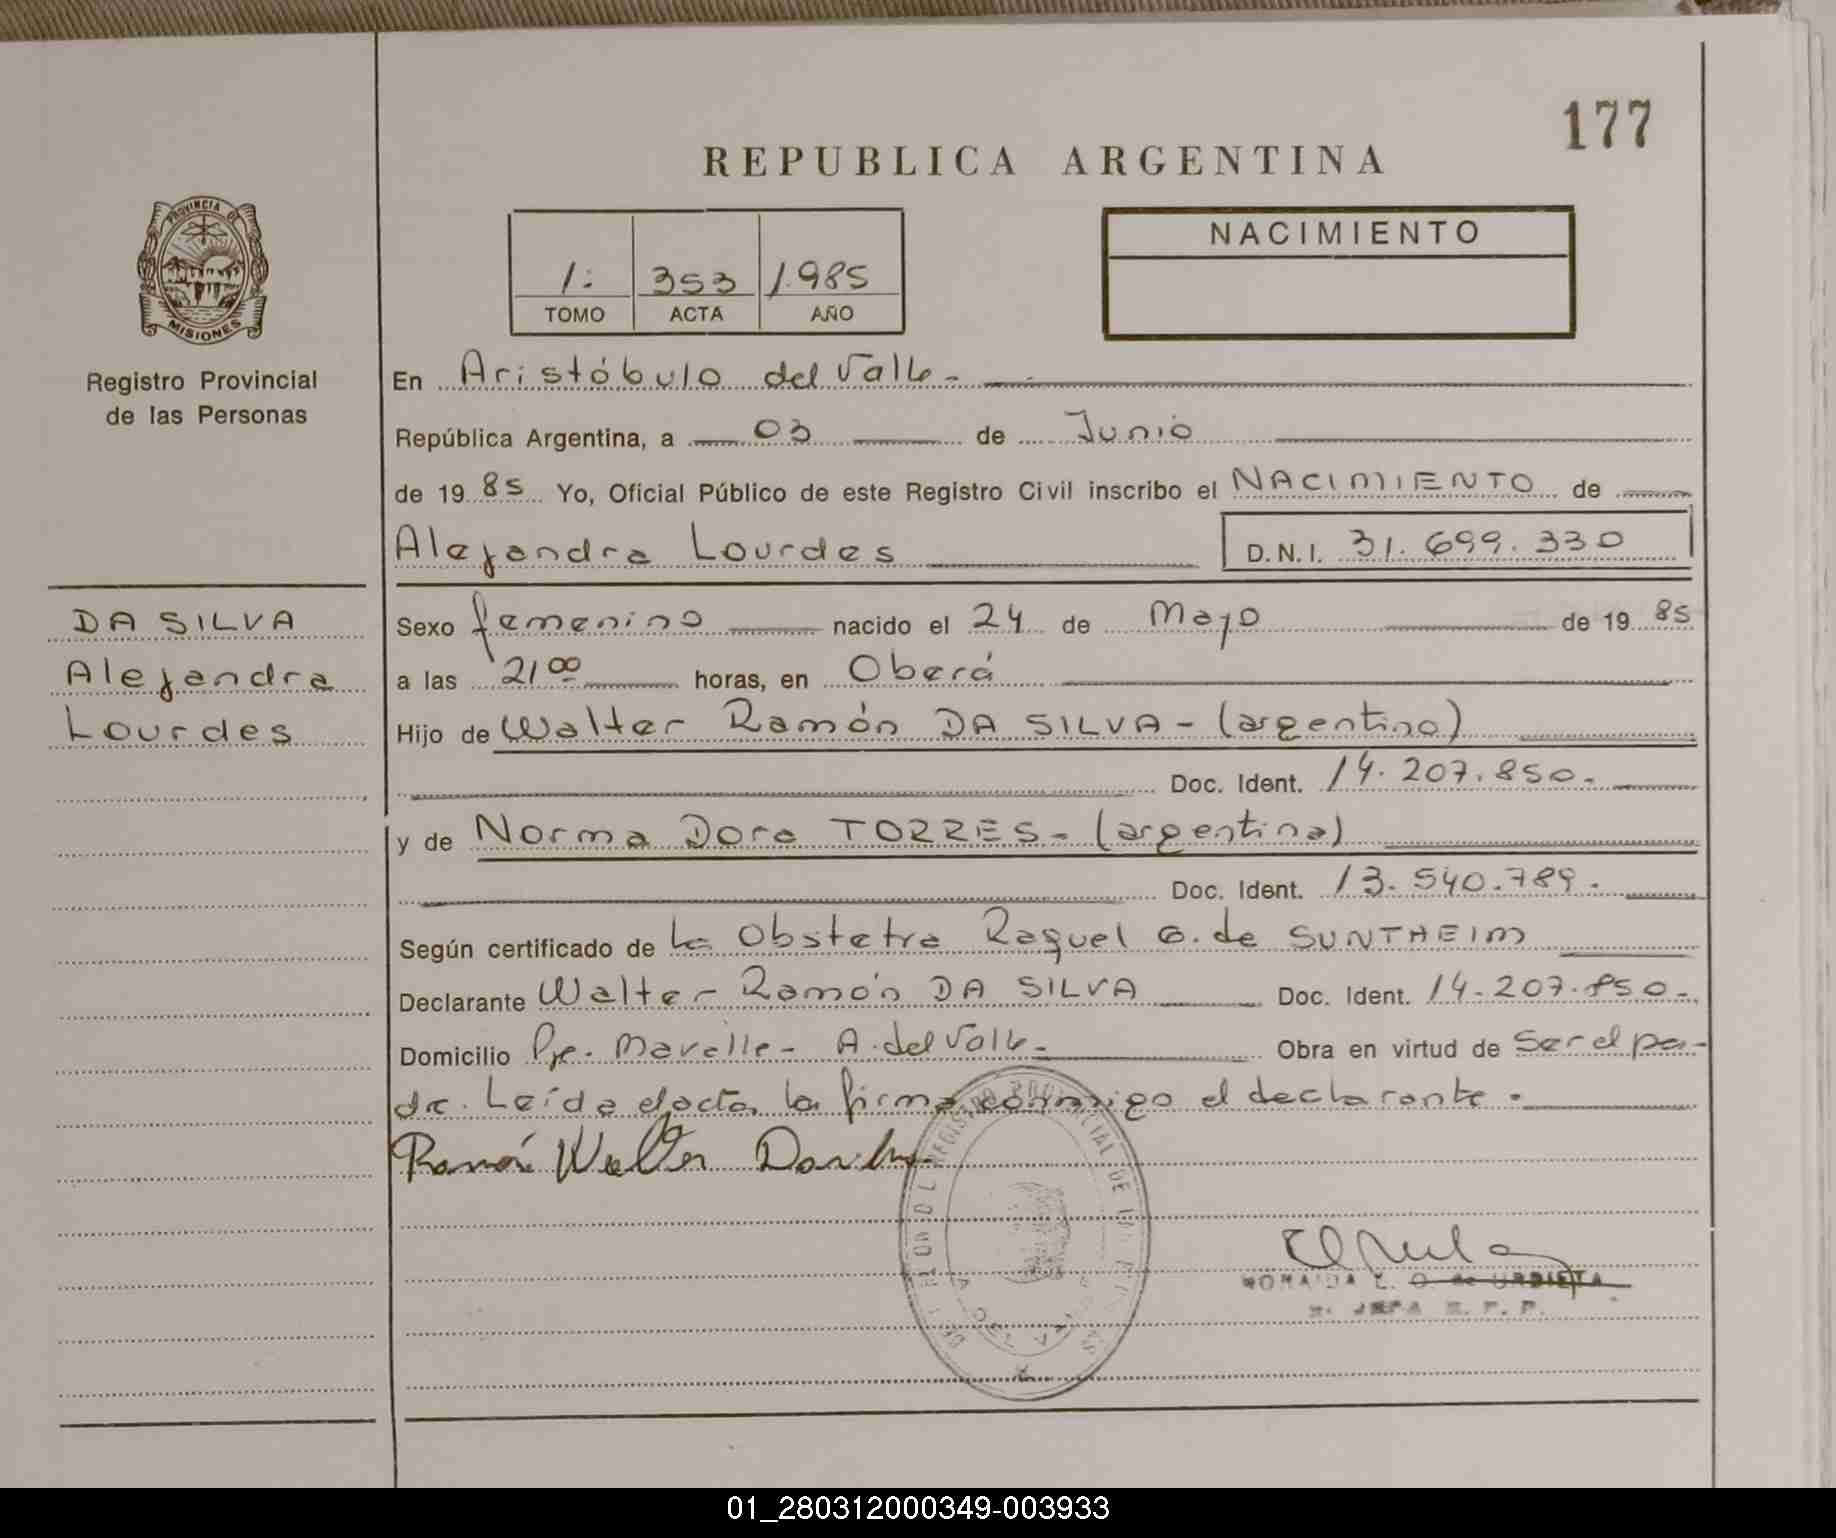 177
REPUBLICA ARGENTINA
PROVINCIA DE
MISIONES
Registro Provincial
de las Personas
1: 353 1.985
TOMO ACTA AÑO
NACIMIENTO
En Aristóbulo del Valle -
República Argentina, a 03 de Junio
de 1985 Yo, Oficial Público de este Registro Civil inscribo el NACIMIENTO de
Alejandra Lourdes D.N.I. 31.699.330
DA SILVA
Alejandra
Lourdes
Sexo femenino nacido el 24 de Mayo de 1985
a las 21 00 horas, en Oberá
Hijo de Walter Ramón DA SILVA - (argentino)
Doc. Ident. 14.207.850.-
y de Norma Dora TORRES - (argentina)
Doc. Ident. 13.540.789.
Según certificado de la Obstetra Raquel G. de SUNTHEIM
Declarante Walter Ramón DA SILVA Doc. Ident. 14.207.850.-
Domicilio Pje. - A. del Valle - Obra en virtud de Ser el pa-
dre. Leída el acta, la firma conmigo el declarante.
Ramón Walter
REGISTRO PROVINCIAL DE
URBIETA
JEFA R. P. P.
01_280312000349-003933